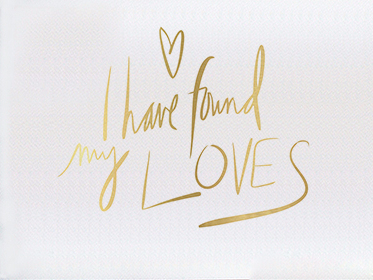 I have found
my LOVES